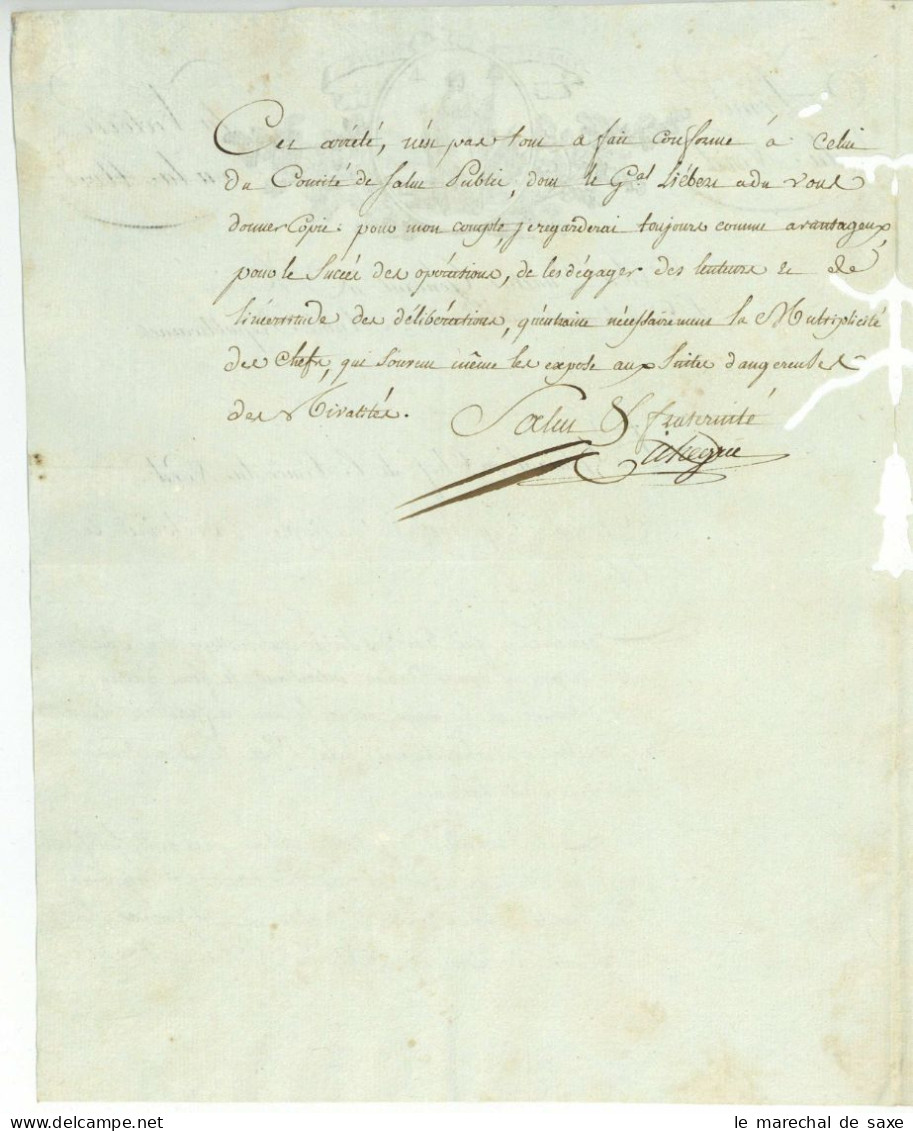 Cet arrêté, n'est pas tout a fait conforme à celui
du Comité de Salut Public, dont le Gal Liébert a du vous
donner Copie : pour mon compte, je regarderai toujours comme avantageux,
pour le Succès des opérations, de les dégager des lenteurs & de
l'incertitude des délibérations, qu'entraine nécessairement la Multiplicité
des Chefs, qui souvent même les expose aux suites dangereuses
des Rivalités.
Salut & fraternité
Pichegru
le marechal de saxe